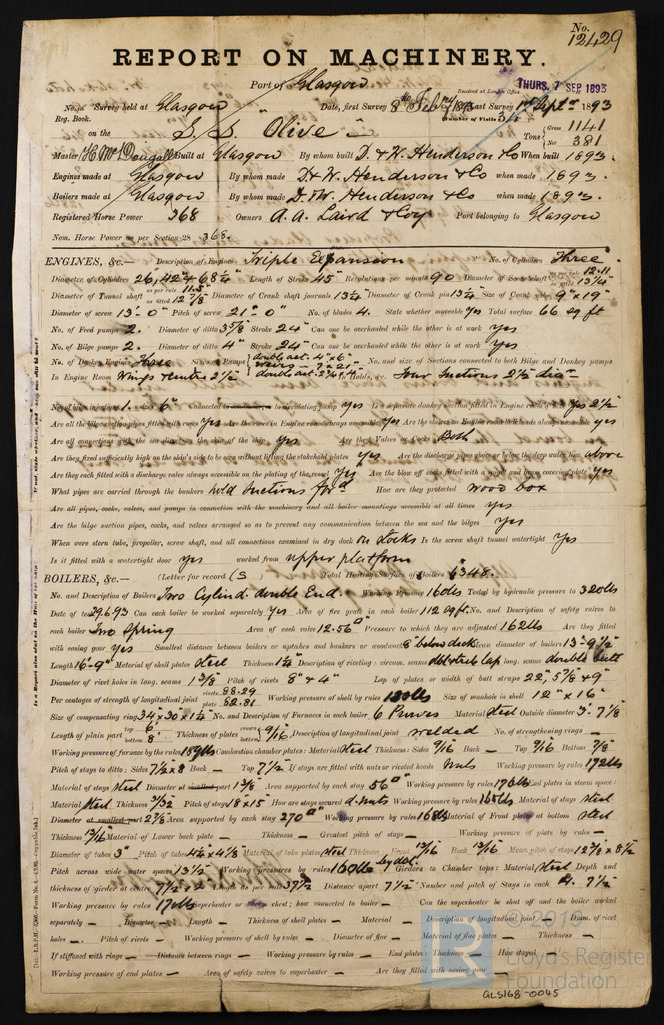 No. 12429
REPORT ON MACHINERY.
Port of Glasgow
Received at London Office THURS. 7 SEP 1893
No. in Survey held at Glasgow Date, first Survey 8th Feb 1893 Last Survey 1st Septr 1893
Reg. Book. (Number of Visits
on the S. S. "Olive" Tons Gross 1141 Net 381
Master H. McDougall Built at Glasgow By whom built D. & W. Henderson & Co When built 1893.
Engines made at Glasgow By whom made D. & W. Henderson & Co when made 1893.
Boilers made at Glasgow By whom made D. & W. Henderson & Co when made 1893.
Registered Horse Power 368 Owners A. A. Laird & Coy Port belonging to Glasgow
Nom. Horse Power as per Section 28 368.
ENGINES, &c.— Description of Engines Triple Expansion No. of Cylinders Three
Diameter of Cylinders 26, 42 & 68¼" Length of Stroke 45" Revolutions per minute 90 Diameter of Screw shaft as per rule 12.11 as fitted 13¼"
Diameter of Tunnel shaft as per rule 11.5 as fitted 12⅞" Diameter of Crank shaft journals 13¼" Diameter of Crank pin 13¼" Size of Crank webs 9" x 19"
Diameter of screw 13'-0" Pitch of screw 21'-0" No. of blades 4. State whether moveable yes Total surface 66 sq ft
No. of Feed pumps 2. Diameter of ditto 3⅝" Stroke 24" Can one be overhauled while the other is at work yes
No. of Bilge pumps 2. Diameter of ditto 4" Stroke 24" Can one be overhauled while the other is at work yes
No. of Donkey Engines Three Sizes of Pumps double act. 4" x 6" No. and size of Suctions connected to both Bilge and Donkey pumps
In Engine Room Wings & centre 2½" In Holds, &c. Four suctions 2½" dia
No. of bilge injections 1. sizes 6" Connected to condenser, or to circulating pump yes Is a separate donkey suction fitted in Engine room & size yes 2½
Are all the bilge suction pipes fitted with roses yes Are the roses in Engine room always accessible yes Are the sluices on Engine room bulkheads always accessible yes
Are all connections with the sea direct on the skin of the ship yes Are they Valves or Cocks Both
Are they fixed sufficiently high on the ship's side to be seen without lifting the stokehold plates yes Are the discharge pipes above or below the deep water line above
Are they each fitted with a discharge valve always accessible on the plating of the vessel yes Are the blow off cocks fitted with a spigot and brass covering plate yes
What pipes are carried through the bunkers hold suctions ford How are they protected wood box
Are all pipes, cocks, valves, and pumps in connection with the machinery and all boiler mountings accessible at all times yes
Are the bilge suction pipes, cocks, and valves arranged so as to prevent any communication between the sea and the bilges yes
When were stern tube, propeller, screw shaft, and all connections examined in dry dock on stocks Is the screw shaft tunnel watertight yes
Is it fitted with a watertight door yes worked from upper platform
BOILERS, &c.— (Letter for record (S) Total Heating Surface of Boilers 6348.
No. and Description of Boilers Two Cylind. double End. Working Pressure 160 lbs Tested by hydraulic pressure to 320 lbs
Date of test 29.6.93 Can each boiler be worked separately yes Area of fire grate in each boiler 112 sq ft. No. and Description of safety valves to
each boiler Two Spring Area of each valve 12.56□" Pressure to which they are adjusted 162 lbs Are they fitted
with easing gear yes Smallest distance between boilers or uptakes and bunkers or woodwork 8" below deck Mean diameter of boilers 13'-9½"
Length 16'-9" Material of shell plates steel Thickness 1¼" Description of riveting: circum. seams dbl & treb lap long. seams double butt
Diameter of rivet holes in long. seams 1⅜" Pitch of rivets 8" & 4" Lap of plates or width of butt straps 22", 5⅝ & 9"
Per centages of strength of longitudinal joint rivets 88.29 plate 82.81 Working pressure of shell by rules Size of manhole in shell 12" x 16"
Size of compensating ring 34 x 30 x 1¼" No. and Description of Furnaces in each boiler 6 Purves Material Steel Outside diameter 3'-7⅛"
Length of plain part top 6" bottom 8" Thickness of plates crown bottom 9/16 Description of longitudinal joint welded No. of strengthening rings —
Working pressure of furnace by the rules 189 lbs Combustion chamber plates: Material steel Thickness: Sides 9/16 Back — Top 9/16 Bottom ⅞
Pitch of stays to ditto: Sides 7½ x 8 Back — Top 7½ If stays are fitted with nuts or riveted heads Nuts Working pressure by rules 172 lbs
Material of stays steel Diameter at smallest part 1⅜ Area supported by each stay 56□" Working pressure by rules 176 lbs End plates in steam space:
Material Steel Thickness 3/32 Pitch of stays 18 x 15 How are stays secured d. nuts Working pressure by rules 165 lbs Material of stays steel
Diameter at smallest part 2⅞ Area supported by each stay 270□" Working pressure by rules 168 lbs Material of Front plates at bottom steel
Thickness 13/16 Material of Lower back plate — Thickness — Greatest pitch of stays — Working pressure of plate by rules —
Diameter of tubes 3" Pitch of tubes 4¼ x 4⅛ Material of tube plates steel Thickness: Front 13/16 Back 13/16 Mean pitch of stays 12⅜ x 8½
Pitch across wide water spaces 13½ Working pressures by rules 160 lbs by dbl. Girders to Chamber tops: Material Steel Depth and
thickness of girder at centre 7½ x 2 Length as per rule 37½ Distance apart 7½" Number and pitch of Stays in each 4. 7½
Working pressure by rules 170 lbs Superheater or Steam chest; how connected to boiler — Can the superheater be shut off and the boiler worked
separately — Diameter — Length Thickness of shell plates — Material — Description of longitudinal joint — Diam. of rivet
holes — Pitch of rivets — Working pressure of shell by rules — Diameter of flue — Material of flue plates — Thickness —
If stiffened with rings — Distance between rings — Working pressure by rules — End plates: Thickness — How stayed
Working pressure of end plates — Area of safety valves to superheater — Are they fitted with easing gear —
© 2019
Lloyd's Register
Foundation
GLS168-0045